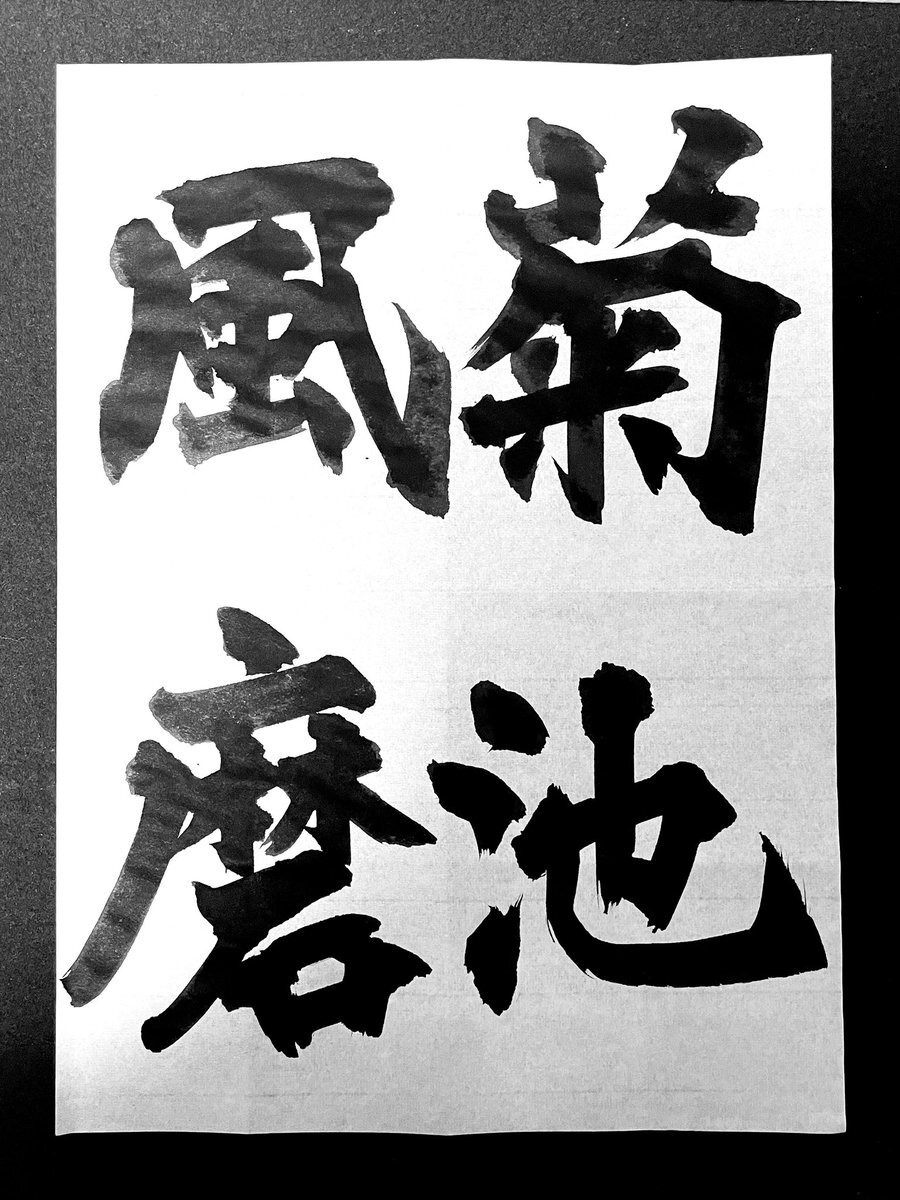 菊池
風磨